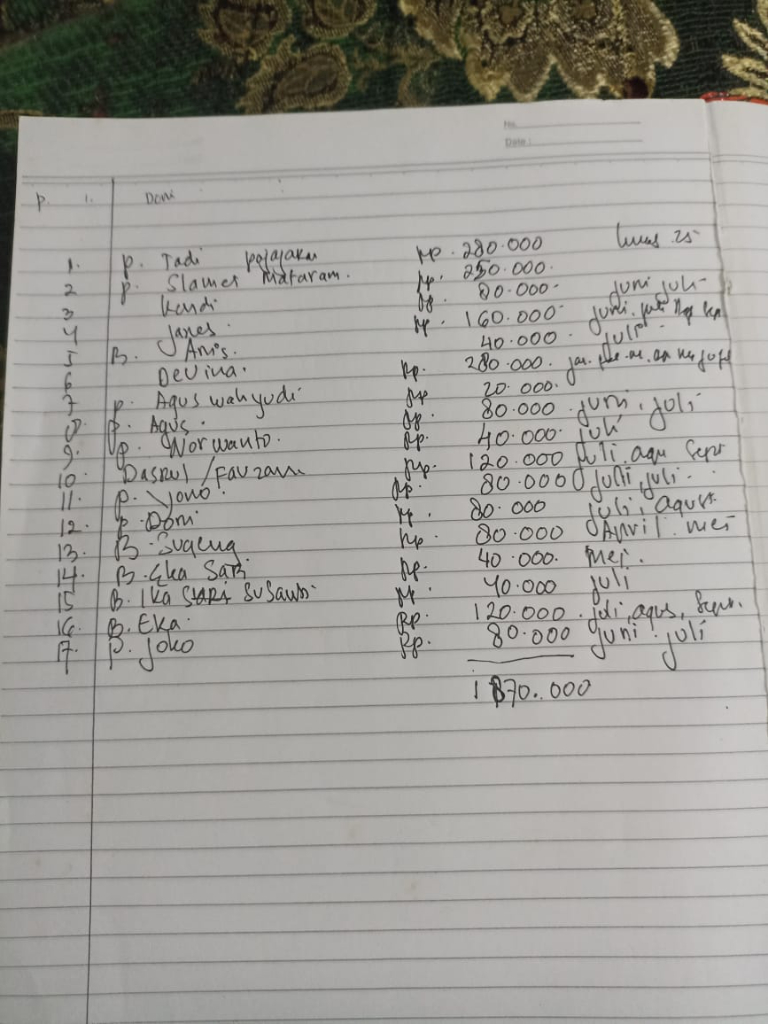 No.
Date:
P. 1. Doni
1. P. Tadi pajajaran Rp. 280.000 lunas 25
2 P. Slamet Mataram. Rp. 250.000.
3 Kandi Rp. 80.000. juni juli
4 James. Rp. 160.000 juni. juli
5 B. Anis. 40.000. juli
6 Devina. Rp. 280.000.
7 P. Agus wahyudi Rp 20.000.
8. P. Agus. Rp. 80.000. juni, juli
9. P. Norwanto. Rp. 40.000. juli
10 Dasrul / Fauzan Rp. 120.000 juli. agu Sept
11. P. Yono. Rp. 80.000 juni, juli.
12. P. Doni Rp. 80.000 juli, agust
13. B. Sugeng Rp. 80.000 April. mei
14. B. Eka SARI Rp. 40.000. mei.
15 B. Ika SARI Susanti. Rp. 40.000 juli
16. B. Eka. Rp. 120.000. juli, agus, Sept.
17. P. joko Rp. 80.000 juni. juli
1870.000